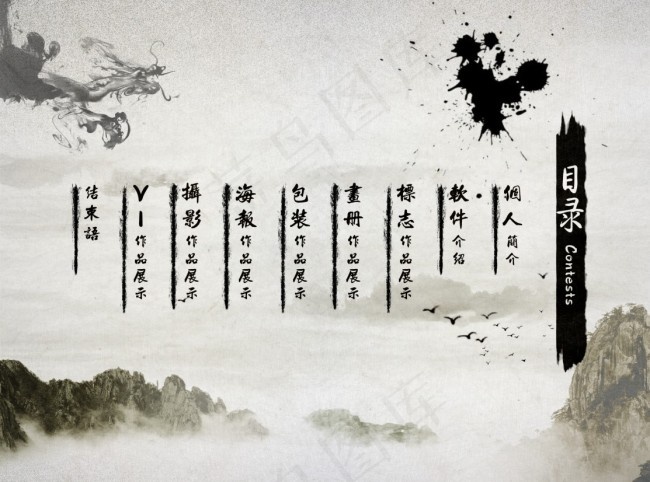 目录
Contests
個人簡介
軟件介紹
標志作品展示
畫册作品展示
包裝作品展示
海報作品展示
攝影作品展示
VI作品展示
结束語